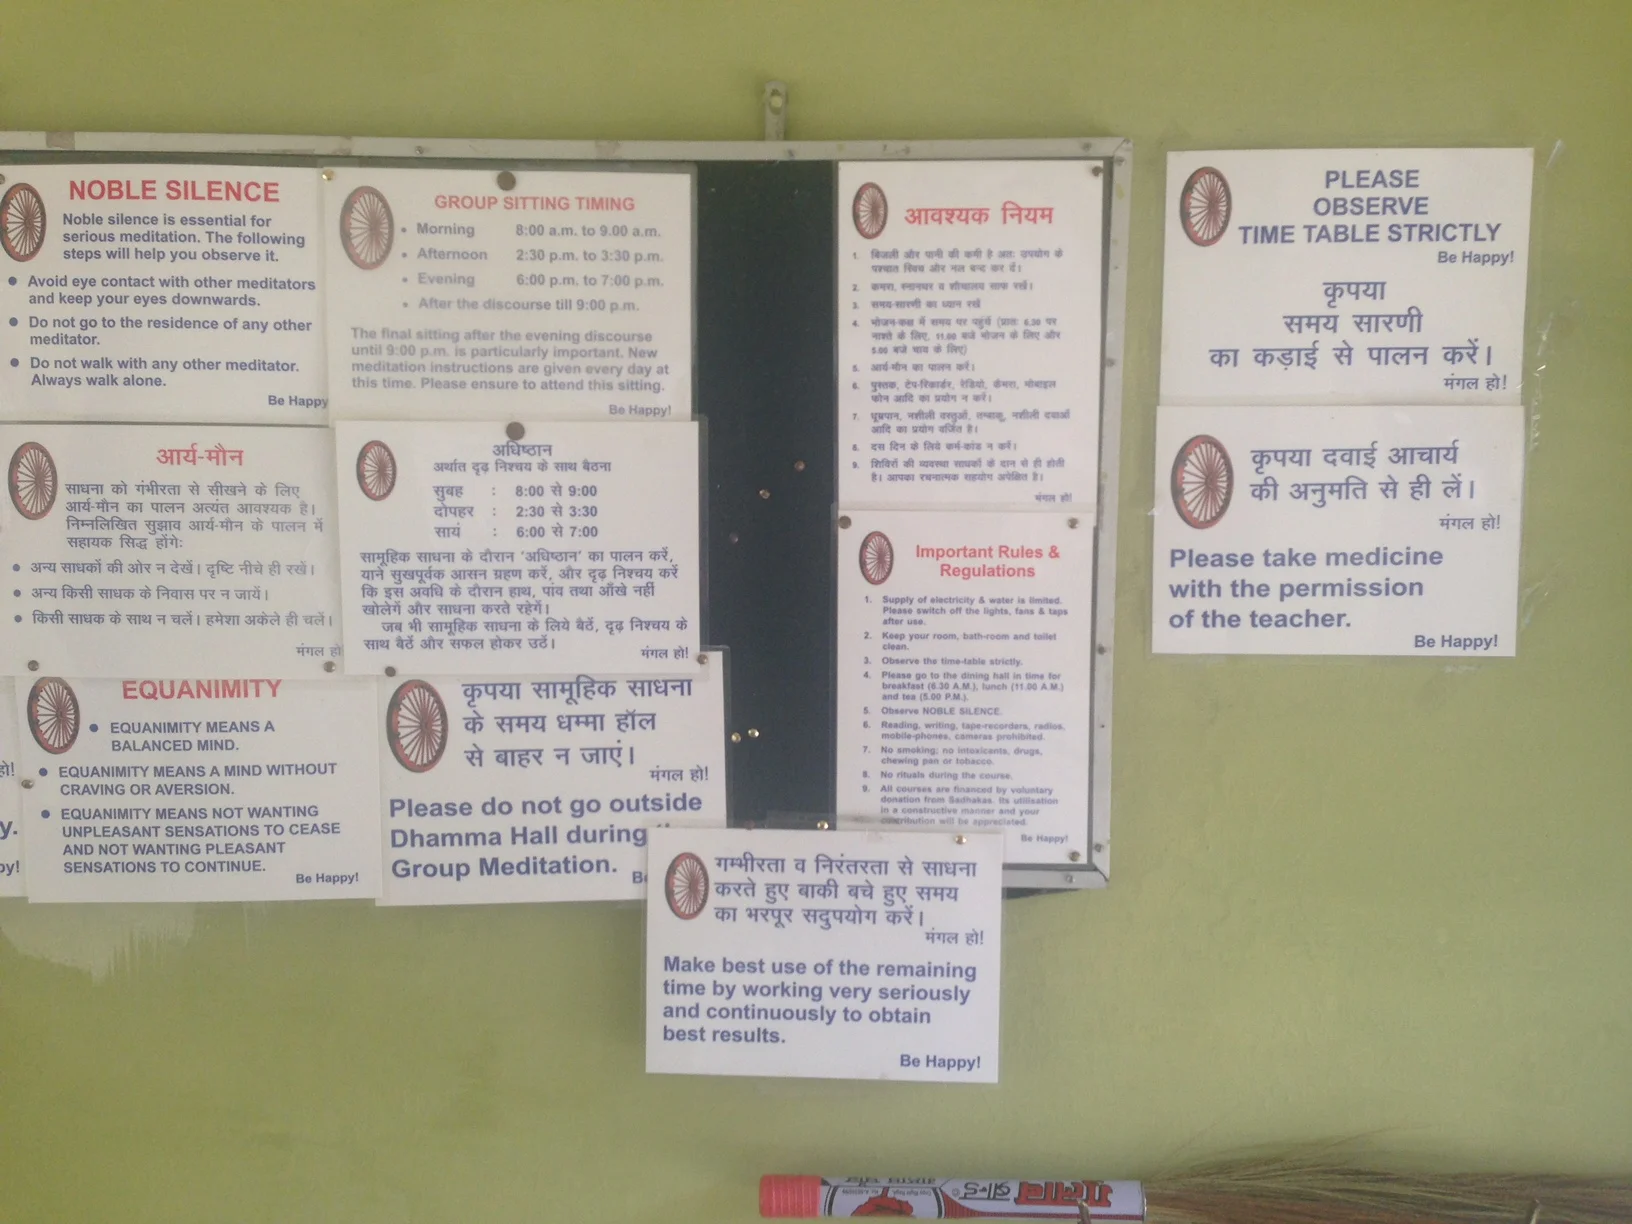 NOBLE SILENCE
Noble silence is essential for
serious meditation. The following
steps will help you observe it.
● Avoid eye contact with other meditators
and keep your eyes downwards.
● Do not go to the residence of any other
meditator.
● Do not walk with any other meditator.
Always walk alone.
Be Happy
GROUP SITTING TIMING
• Morning 8:00 a.m. to 9.00 a.m.
• Afternoon 2:30 p.m. to 3:30 p.m.
• Evening 6:00 p.m. to 7:00 p.m.
• After the discourse till 9:00 p.m.
The final sitting after the evening discourse
until 9:00 p.m. is particularly important. New
meditation instructions are given every day at
this time. Please ensure to attend this sitting.
Be Happy!
आर्य-मौन
साधना को गंभीरता से सीखने के लिए
आर्य-मौन का पालन अत्यंत आवश्यक है।
निम्नलिखित सुझाव आर्य-मौन के पालन में
सहायक सिद्ध होंगेः
• अन्य साधकों की ओर न देखें। दृष्टि नीचे ही रखें।
• अन्य किसी साधक के निवास पर न जायें।
• किसी साधक के साथ न चलें। हमेशा अकेले ही चलें।
मंगल हो!
अधिष्ठान
अर्थात दृढ़ निश्चय के साथ बैठना
सुबह : 8:00 से 9:00
दोपहर : 2:30 से 3:30
सायं : 6:00 से 7:00
सामूहिक साधना के दौरान 'अधिष्ठान' का पालन करें,
याने सुखपूर्वक आसन ग्रहण करें, और दृढ़ निश्चय करें
कि इस अवधि के दौरान हाथ, पांव तथा आँखे नहीं
खोलेगें और साधना करते रहेगें।
जब भी सामूहिक साधना के लिये बैठें, दृढ़ निश्चय के
साथ बैठें और सफल होकर उठें।
मंगल हो!
हो!
y.
py!
EQUANIMITY
● EQUANIMITY MEANS A
BALANCED MIND.
● EQUANIMITY MEANS A MIND WITHOUT
CRAVING OR AVERSION.
● EQUANIMITY MEANS NOT WANTING
UNPLEASANT SENSATIONS TO CEASE
AND NOT WANTING PLEASANT
SENSATIONS TO CONTINUE.
Be Happy!
कृपया सामूहिक साधना
के समय धम्मा हॉल
से बाहर न जाएं।
मंगल हो!
Please do not go outside
Dhamma Hall during
Group Meditation.
आवश्यक नियम
1. बिजली और पानी की कमी है अतः उपयोग के
पश्चात स्विच और नल बन्द कर दें।
2. कमरा, स्नानघर व शौचालय साफ रखें।
3. समय-सारणी का ध्यान रखें
4. भोजन-कक्ष में समय पर पहुंचें (प्रातः 6.30 पर
नाश्ते के लिए, 11.00 बजे भोजन के लिए और
5.00 बजे चाय के लिए)
5. आर्य-मौन का पालन करें।
6. पुस्तक, टेप-रिकार्डर, रेडियो, कैमरा, मोबाइल
फोन आदि का प्रयोग न करें।
7. धूम्रपान, नशीली वस्तुओं, तम्बाखू, नशीली दवाओं
आदि का प्रयोग वर्जित है।
8. दस दिन के लिये कर्म-कांड न करें।
9. शिविरों की व्यवस्था साधकों के दान से ही होती
है। आपका रचनात्मक सहयोग अपेक्षित है।
मंगल हो!
Important Rules &
Regulations
1. Supply of electricity & water is limited.
Please switch off the lights, fans & taps
after use.
2. Keep your room, bath-room and toilet
clean.
3. Observe the time-table strictly.
4. Please go to the dining hall in time for
breakfast (6.30 A.M.), lunch (11.00 A.M.)
and tea (5.00 P.M.).
5. Observe NOBLE SILENCE.
6. Reading, writing, tape-recorders, radios,
mobile-phones, cameras prohibited.
7. No smoking; no intoxicents, drugs,
chewing pan or tobacco.
8. No rituals during the course.
9. All courses are financed by voluntary
donation from Sadhakas. Its utilisation
in a constructive manner and your
contribution will be appreciated.
Be Happy!
गम्भीरता व निरंतरता से साधना
करते हुए बाकी बचे हुए समय
का भरपूर सदुपयोग करें।
मंगल हो!
Make best use of the remaining
time by working very seriously
and continuously to obtain
best results.
Be Happy!
PLEASE
OBSERVE
TIME TABLE STRICTLY
Be Happy!
कृपया
समय सारणी
का कड़ाई से पालन करें।
मंगल हो!
कृपया दवाई आचार्य
की अनुमति से ही लें।
मंगल हो!
Please take medicine
with the permission
of the teacher.
Be Happy!